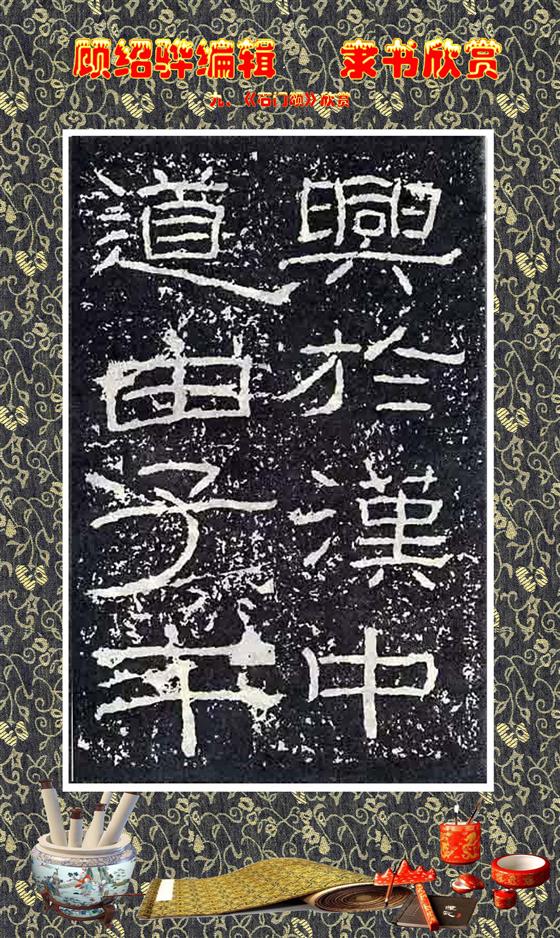 顾绍骅编辑 隶书欣赏
九、《石门颂》欣赏
興於漢中
道由子午